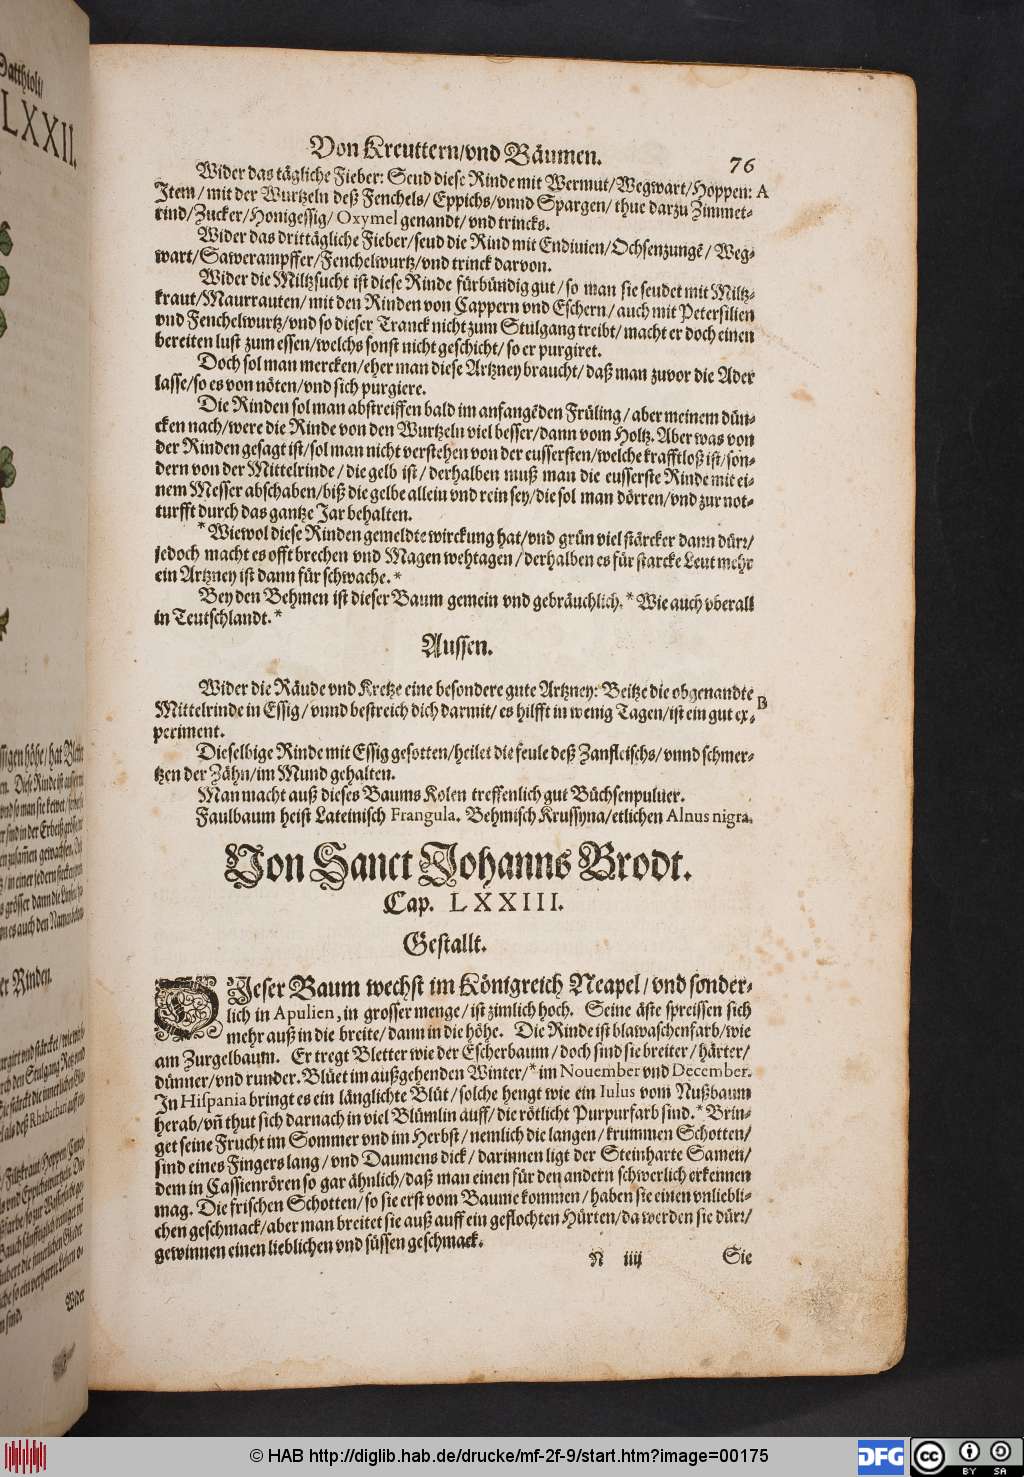 Matthioli/
LXXII.
Von Kreuttern/vnd Bäumen. 76
Wider das tägliche Fieber: Seud diese Rinde mit Wermut/Wegwart/Hoppen: A
Item/ mit der Wurtzeln deß Fenchels/ Eppichs/vnnd Spargen/ thue darzu Zimmet-
rind/Zucker/Honigessig/ Oxymel genandt/ vnd trincks.
Wider das drittägliche Fieber/seud die Rind mit Endiuien/Ochsenzungē/ Weg-
wart/Sawerampffer/Fenchelwurtz/vnd trinck darvon.
Wider die Miltzsucht ist diese Rinde fürbündig gut/ so man sie seudet mit Miltz-
kraut/Maurrauten/ mit den Rinden von Cappern vnd Eschern/ auch mit Petersilien
vnd Fenchelwurtz/vnd so dieser Tranck nicht zum Stulgang treibt/ macht er doch einen
bereiten lust zum essen/welchs sonst nicht geschicht/ so er purgiret.
Doch sol man mercken/eher man diese Artzney braucht/ daß man zuvor die Ader
lasse/so es von nöten/vnd sich purgiere.
Die Rinden sol man abstreiffen bald im anfangēden Früling/ aber meinem dün-
cken nach/were die Rinde von den Wurtzeln viel besser/dann vom Holtz. Aber was von
der Rinden gesagt ist/sol man nicht verstehen von der eussersten/welche krafftloß ist/son-
dern von der Mittelrinde/ die gelb ist/ derhalben muß man die eusserste Rinde mit ei-
nem Messer abschaben/biß die gelbe allein vnd rein sey/die sol man dörren/vnd zur not-
turfft durch das gantze Jar behalten.
* Wiewol diese Rinden gemeldte wirckung hat/vnd grün viel stärcker dann dürr/
jedoch macht es offt brechen vnd Magen wehtagen/ derhalben es für starcke Leut mehr
ein Artzney ist dann für schwache. *
Bey den Behmen ist dieser Baum gemein vnd gebräuchlich. * Wie auch vberall
in Teutschlandt. *
Aussen.
Wider die Räude vnd Kretze eine besondere gute Artzney: Beitze die obgenandte B
Mittelrinde in Essig/ vnnd bestreich dich darmit/ es hilfft in wenig Tagen/ist ein gut ex-
periment.
Dieselbige Rinde mit Essig gesotten/heilet die feule deß Zanfleischs/ vnnd schmer-
tzen der Zähn/im Mund gehalten.
Man macht auß dieses Baums Kolen treffenlich gut Büchsenpuluer.
Faulbaum heist Lateinisch Frangula. Behmisch Krussyna/etlichen Alnus nigra.
Von Sanct Johanns Brodt.
Cap. LXXIII.
Gestallt.
DIeser Baum wechst im Königreich Neapel/ vnd sonder-
lich in Apulien, in grosser menge/ ist zimlich hoch. Seine äste spreissen sich
mehr auß in die breite/ dann in die höhe. Die Rinde ist blawaschenfarb/wie
am Zurgelbaum. Er tregt Bletter wie der Escherbaum/ doch sind sie breiter/ härter/
dünner/vnd runder. Blüet im außgehenden Winter/* im Nouember vnd December.
In Hispania bringt es ein länglichte Blüt/ solche hengt wie ein Iulus vom Nußbaum
herab/ vn̄ thut sich darnach in viel Blümlin auff/ die rötlicht Purpurfarb sind. * Brin-
get seine Frucht im Sommer vnd im Herbst/ nemlich die langen/ krummen Schotten/
sind eines Fingers lang/ vnd Daumens dick/ darinnen ligt der Steinharte Samen/
dem in Cassienrören so gar ähnlich/ daß man einen für den andern schwerlich erkennen
mag. Die frischen Schotten/ so sie erst vom Baume kommen/ haben sie einen vnliebli-
chen geschmack/aber man breitet sie auß auff ein geflochten Hürten/da werden sie dürr/
gewinnen einen lieblichen vnd süssen geschmack.
N iiij Sie
© HAB http://diglib.hab.de/drucke/mf-2f-9/start.htm?image=00175
DFG
cc BY SA